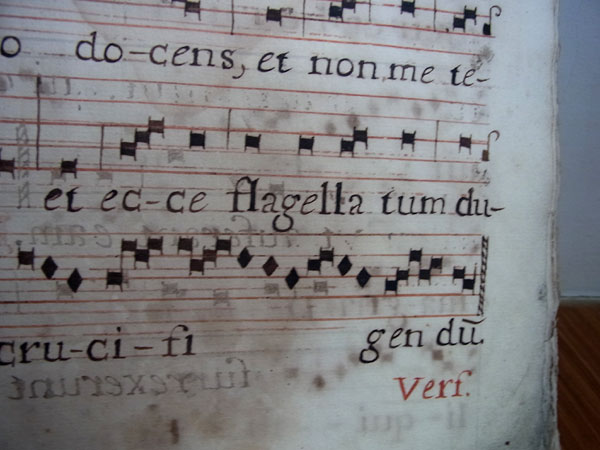 o do-cens, et non me te-
et ec-ce flagella tum du-
cru-ci-fi gen dū.
Vers.